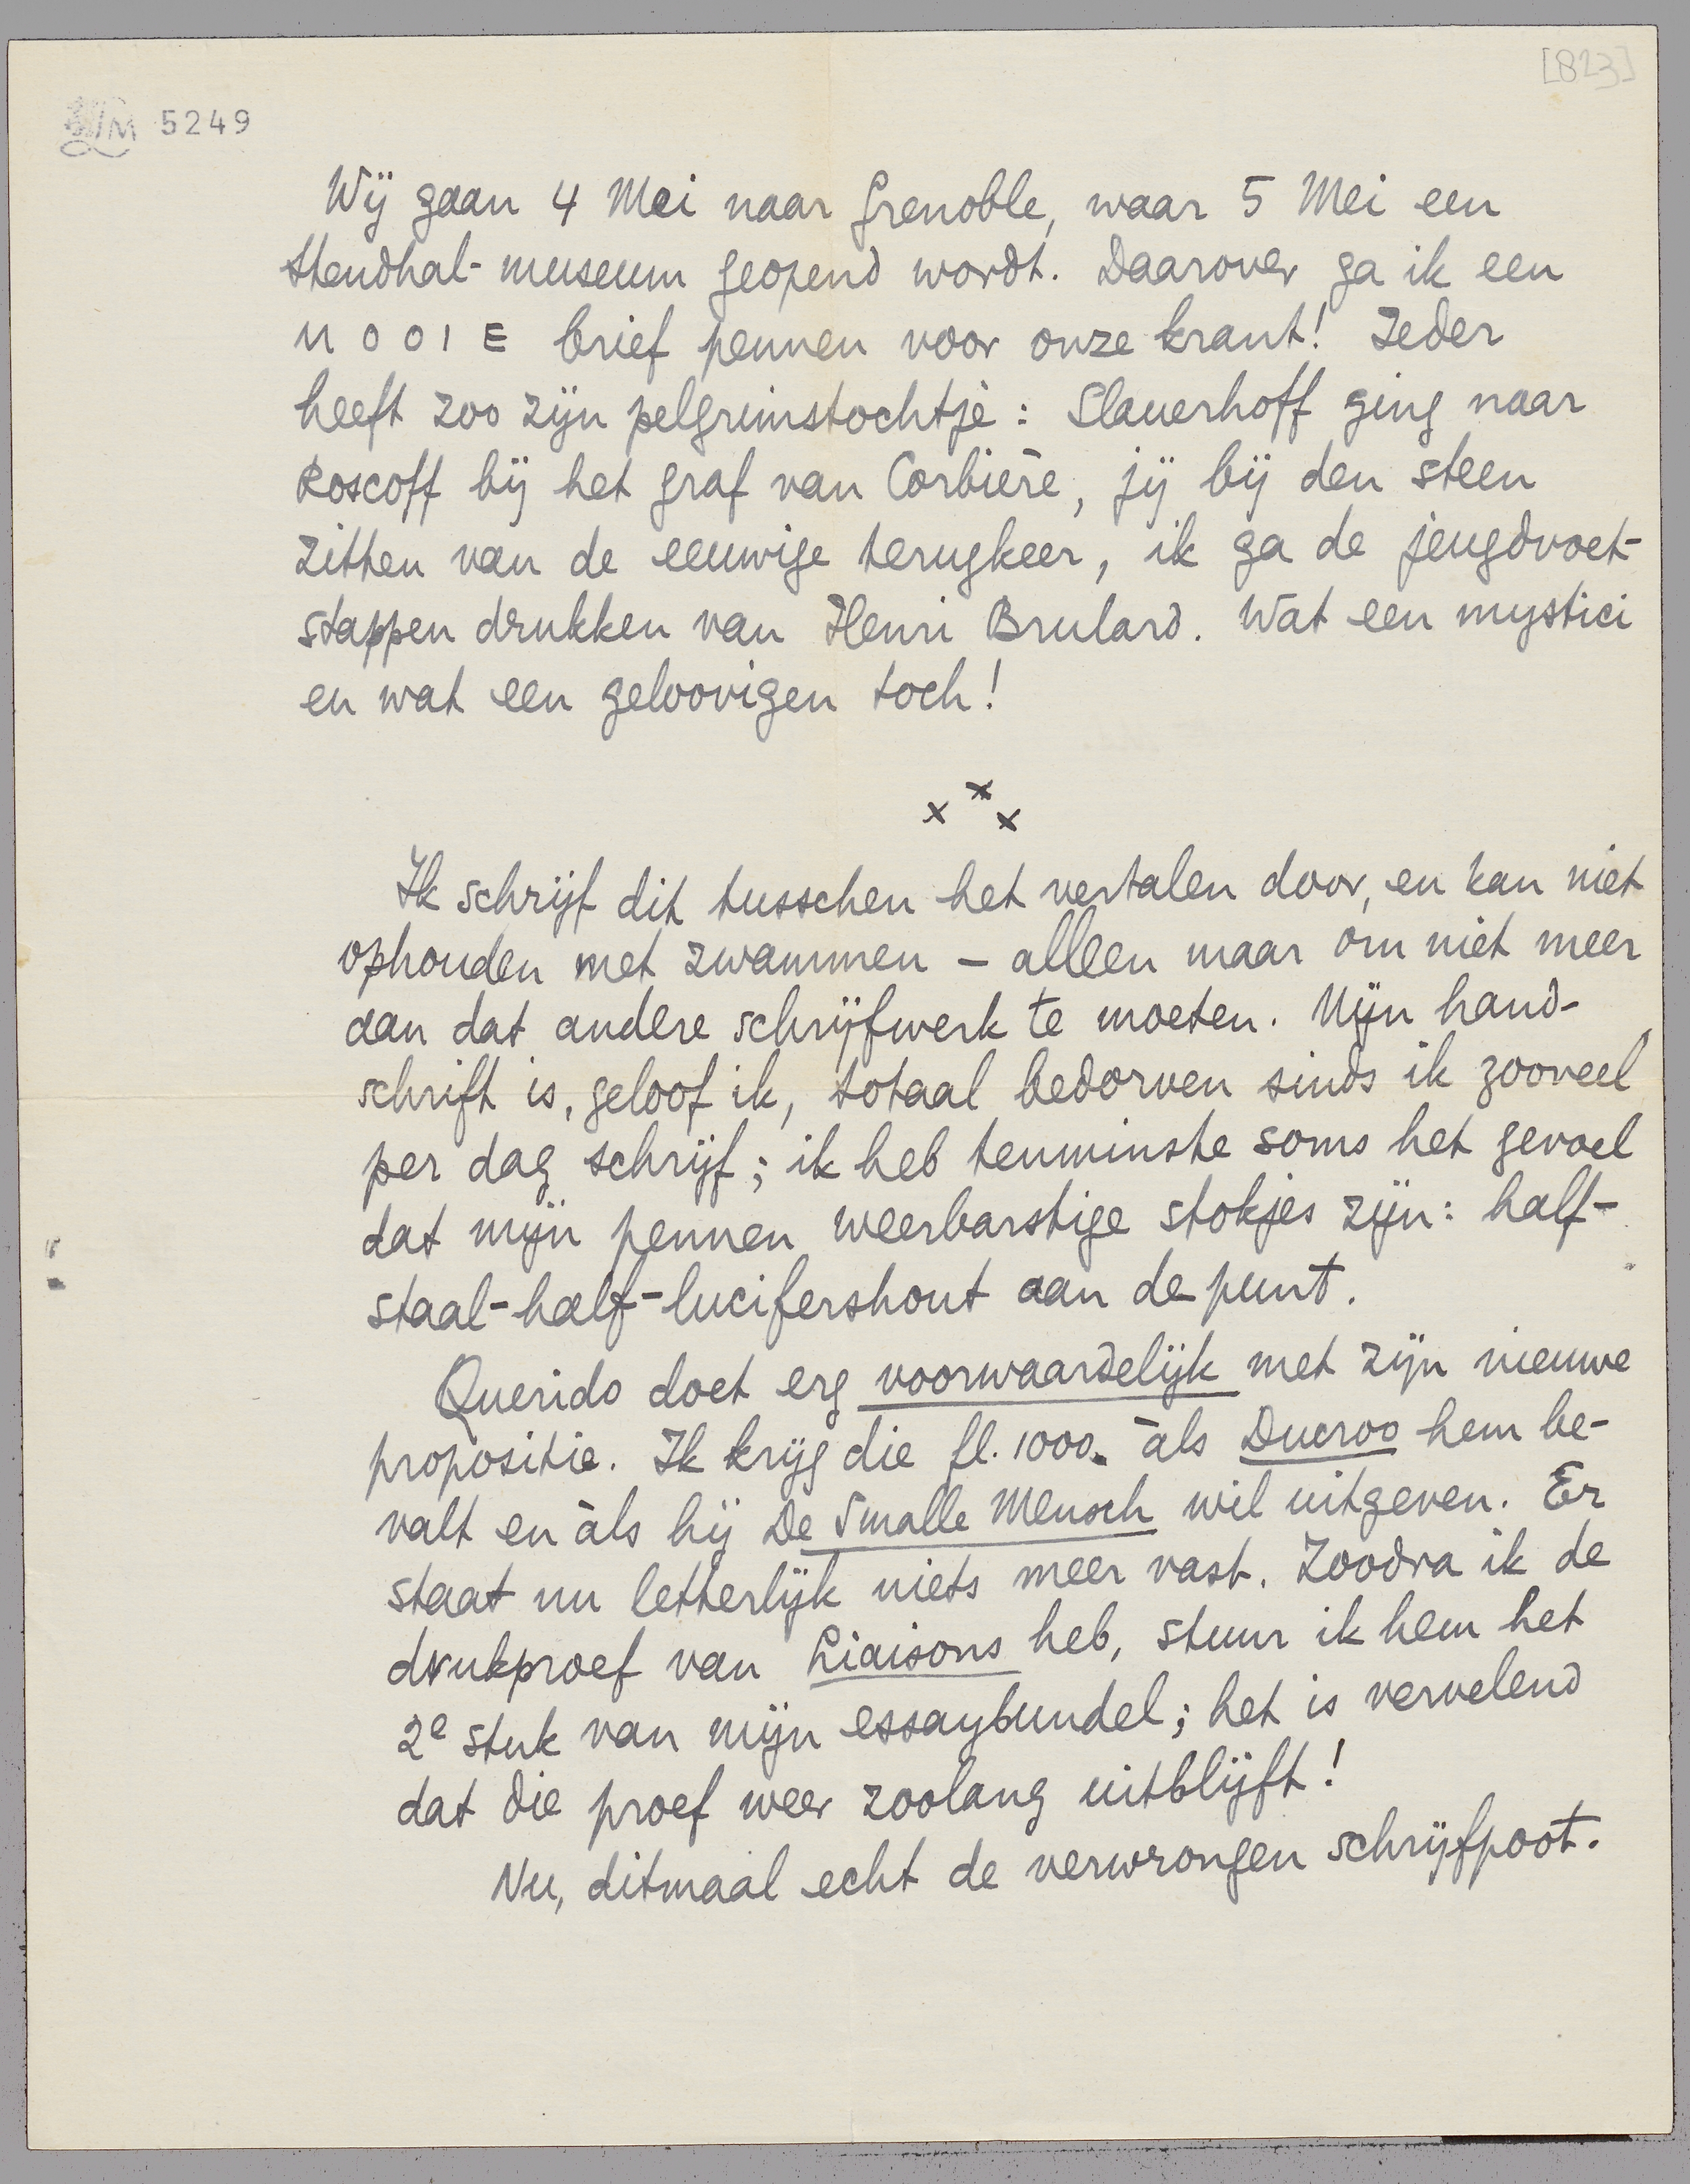 [823]
LM 5249
Wij gaan 4 Mei naar Grenoble, waar 5 Mei een
Stendhal-museum geopend wordt. Daarover ga ik een
MOOIE brief pennen voor onze krant! Ieder
heeft zoo zijn pelgrimstochtje: Slauerhoff ging naar
Roscoff bij het graf van Corbière, jij bij den steen
zitten van de eeuwige terugkeer, ik ga de jeugdvoet-
stappen drukken van Henri Brulard. Wat een mystici
en wat een geloovigen toch!
x x x
Ik schrijf dit tusschen het vertalen door, en kan niet
ophouden met zwammen – alleen maar om niet meer
aan dat andere schrijfwerk te moeten. Mijn hand-
schrift is, geloof ik, totaal bedorven sinds ik zooveel
per dag schrijf; ik heb tenminste soms het gevoel
dat mijn pennen weerbarstige stokjes zijn: half-
staal-half-lucifershout aan de punt.
Querido doet erg voorwaardelijk met zijn nieuwe
propositie. Ik krijg die fl. 1000. àls Ducroo hem be-
valt en àls hij De Smalle Mensch wil uitgeven. Er
staat nu letterlijk niets meer vast. Zoodra ik de
drukproef van Liaisons heb, stuur ik hem het
2e stuk van mijn essaybundel; het is vervelend
dat die proef weer zoolang uitblijft!
Nu, ditmaal echt de verwrongen schrijfpoot.